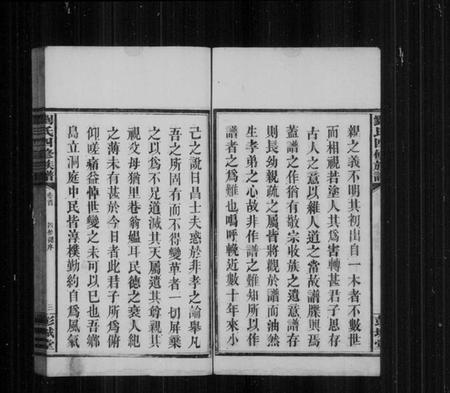 親之義不明其初出自一本者不數世
而相視若塗人其為害轉甚君子思存
古人之意以維人道之當故譜牒興焉
蓋譜之作猶有敬宗收族之遺意譜存
則長幼親疏之屬皆將觀於譜而油然
生孝弟之心故非作譜之難知所以作
譜者之為難也嗚呼輓近數十年來小
己之說日昌士夫惑於非孝之論舉凡
吾之所固有而不得變革者一切屏棄
之以為不足道滅其天屬遺其尊親其
視父母猶里巷翁媼耳民德之衰人紀
之薄未有甚於今日者此君子所為俯
仰嗟痛益悼世變之未可以已也吾鄉
島立洞庭中民皆淳樸勤約自為風氣
劉氏四修族譜
卷首
三
彭城堂